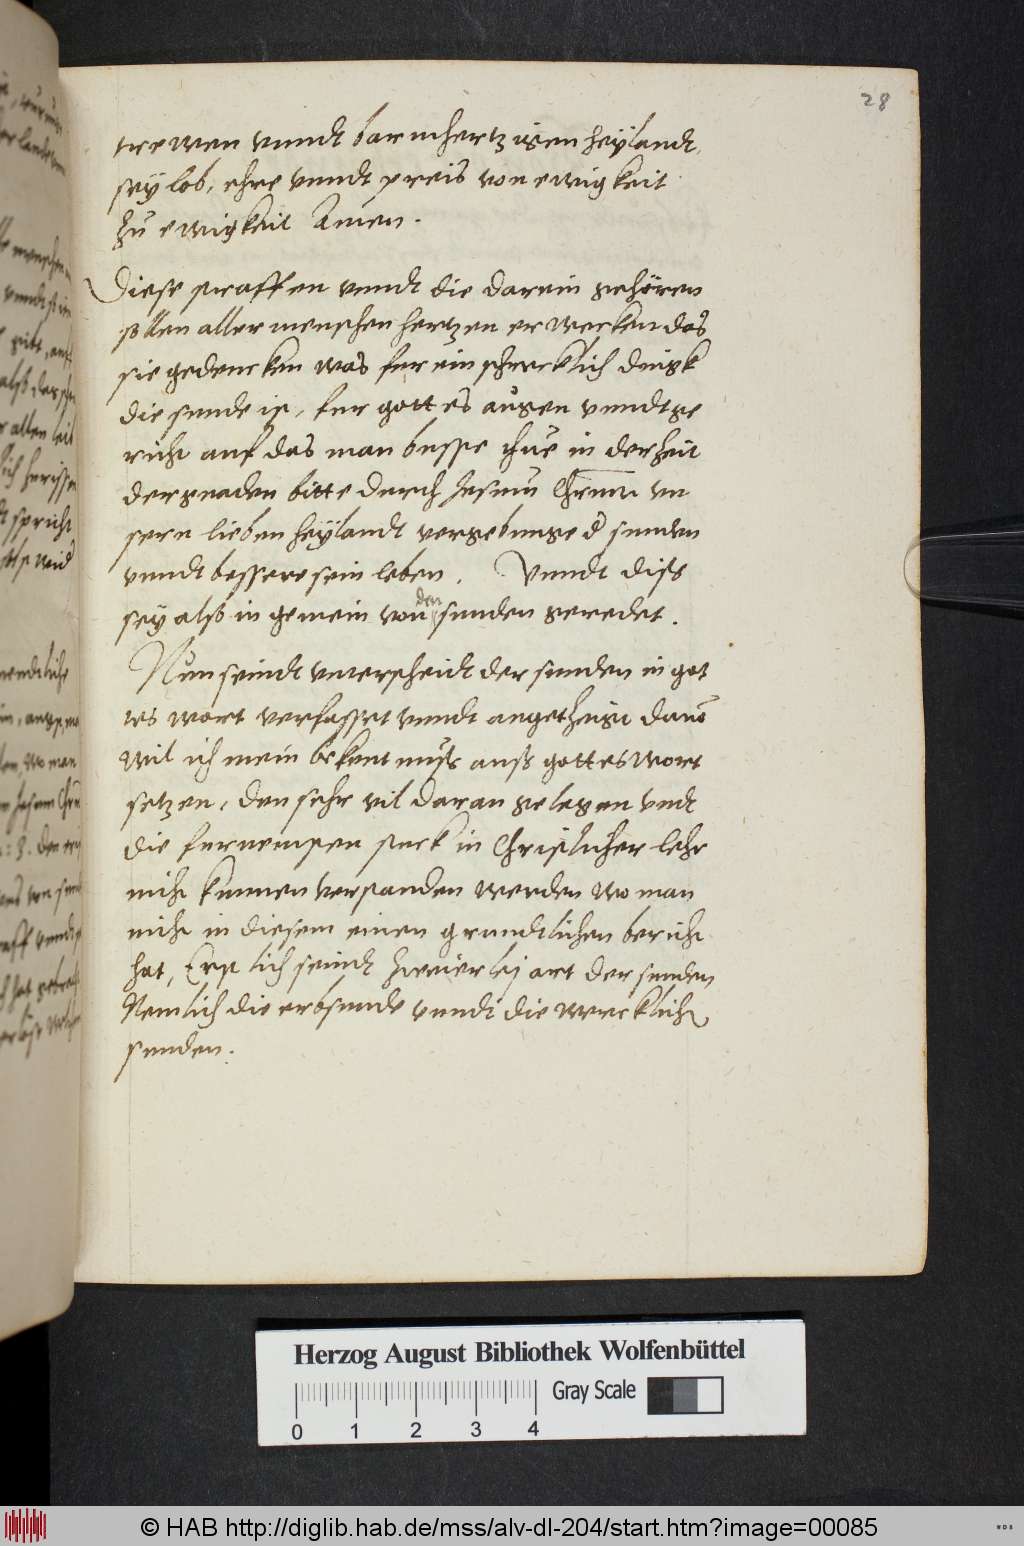 28
trewen vnndt barmhertzigen heÿlandt,
seÿ lob, ehre vnndt preis von ewigkeit
zu ewigkeit Amen.
Diese straffen vnndt die darein gehören
sollen aller menschen hertzen erwecken das
sie gedencken was fur ein schrecklich dingk
die sunde ist, fur gottes augen vnndt ge
richt auf das man busse thue in der zeit
der gnaden bitte durch Jesum Christum vn
sern lieben heÿlandt vergebunge d sunden
vnndt bessere sein leben. Vnndt diss
seÿ alsso in gemein von den sunden geredet.
Nun seindt vnterscheidt der sunden in got
tes wort verfasset vnndt angetheigt dauo
wil ich mein bekentnuss auss gottes wort
setzen, den sehr vil daran gelegen vndt
die furnempsten stuck in Christlicher lehr
nicht kunnen verstanden werden wo man
nicht in diesem einen grundtlichen bericht
hat, Erstlich seindt zweierleÿ art der sunden
Nemlich die erbsunde vnndt die wircklich
sunden.
Herzog August Bibliothek Wolfenbüttel
Gray Scale
0 1 2 3 4
© HAB http://diglib.hab.de/mss/alv-dl-204/start.htm?image=00085